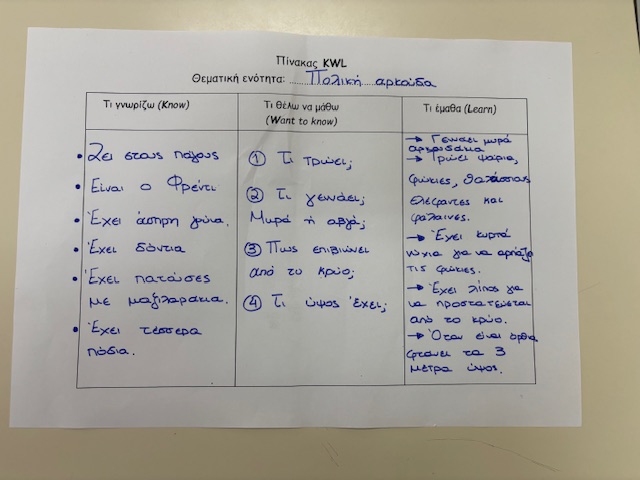 Πίνακας KWL
Θεματική ενότητα: Πολική αρκούδα
Τι γνωρίζω (Know)
• Ζει στους πάγους
• Είναι ο Φρέντι
• Έχει άσπρη γούνα.
• Έχει δόντια
• Έχει πατούσες
με μαξιλαράκια.
• Έχει τέσσερα
πόδια.
Τι θέλω να μάθω
(Want to know)
① Τι τρώει;
② Τι γεννάει;
Μωρά ή αβγά;
③ Πως επιβιώνει
από το κρύο;
④ Τι ύψος έχει;
Τι έμαθα (Learn)
→ Γεννάει μωρά
αρκουδάκια
→ Τρώει ψάρια,
φώκιες, θαλάσσιους
ελέφαντες και
φάλαινες.
→ Έχει κυρτά
νύχια για να αρπάζει
τις φώκιες.
→ Έχει λίπος για
να προστατεύεται
από το κρύο.
→ Όταν είναι όρθια
φτάνει τα 3
μέτρα ύψος.